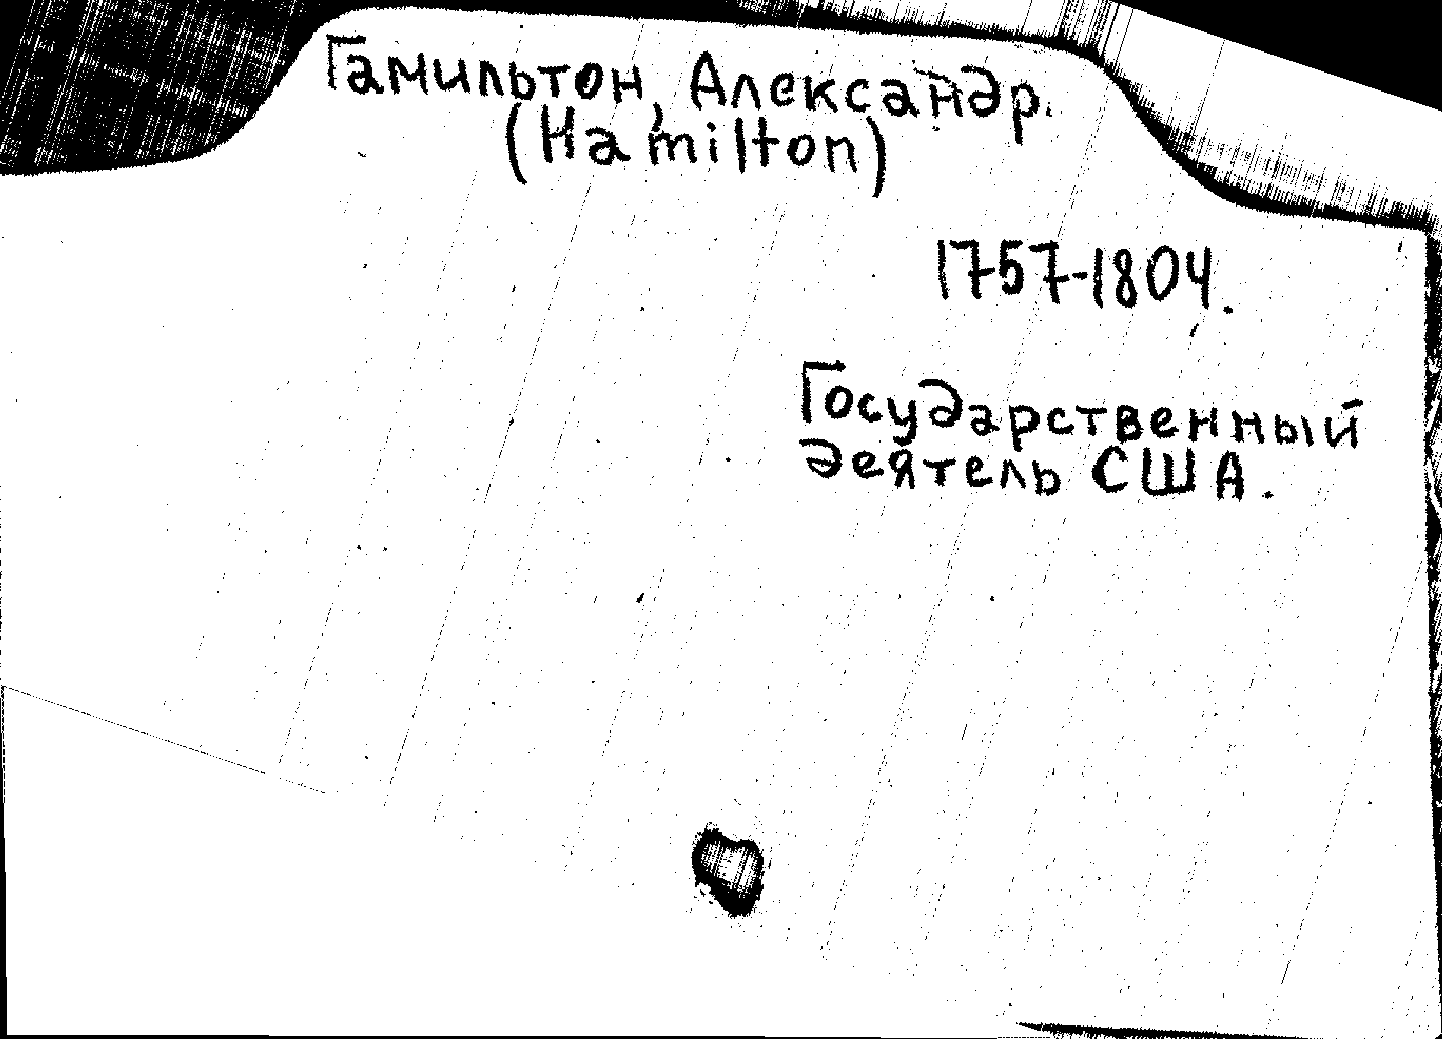 Гамильтон, Александр.
(Hamilton)
1757-1804.
Государственный
деятель США.